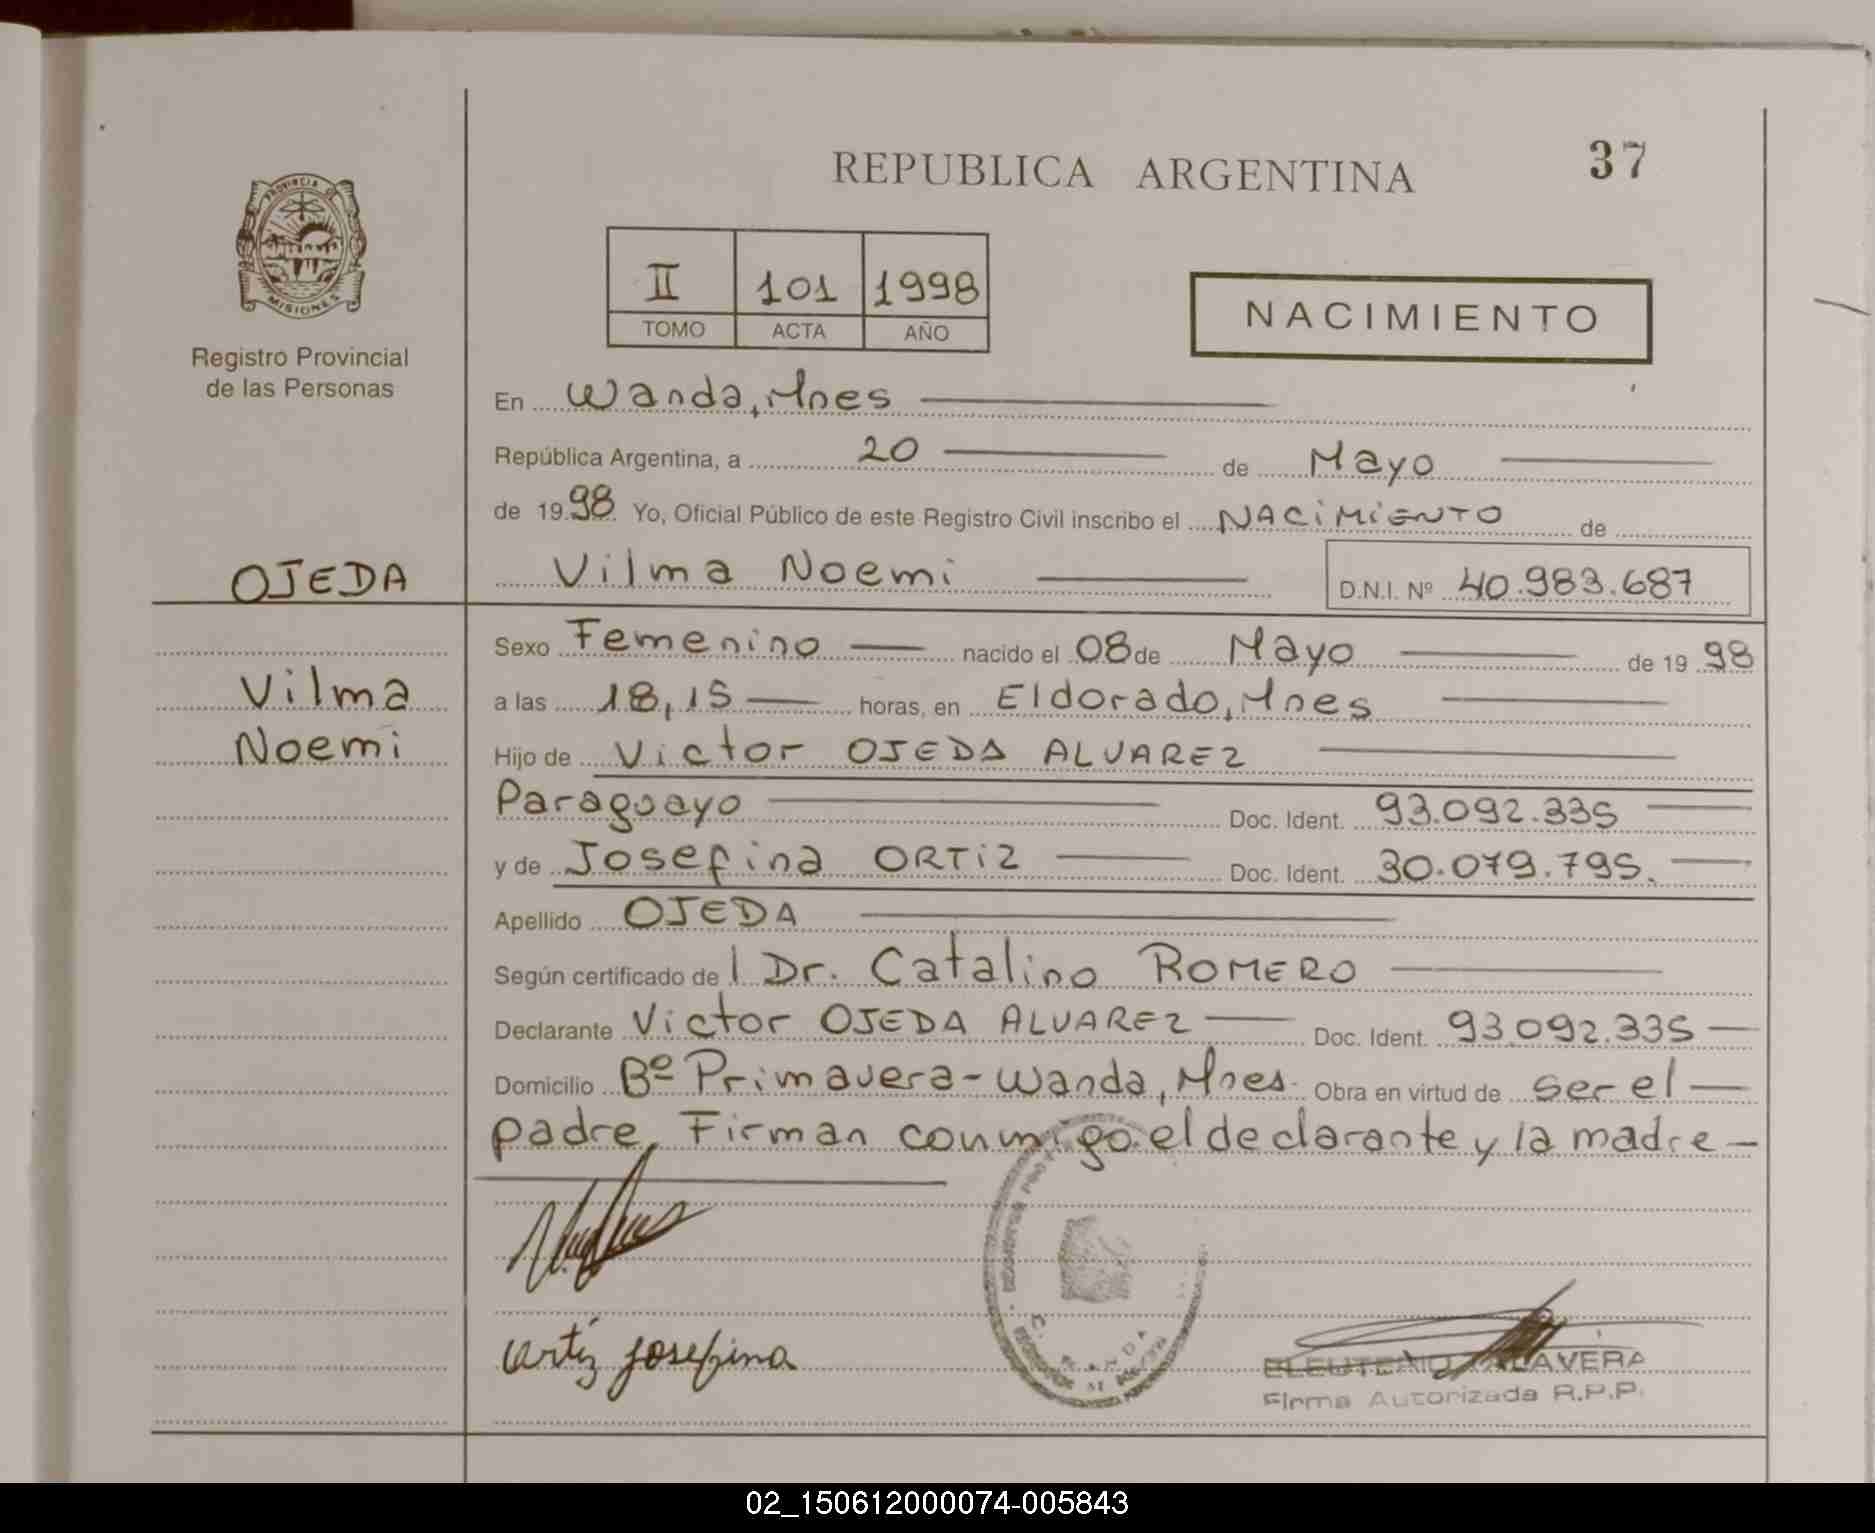 REPUBLICA ARGENTINA
37
PROVINCIA DE
MISIONES
Registro Provincial
de las Personas
II 101 1998
TOMO ACTA AÑO
NACIMIENTO
En Wanda, Mnes
República Argentina, a 20 de Mayo
de 1998 Yo, Oficial Público de este Registro Civil inscribo el NACIMIENTO de
OJEDA
Vilma Noemi
D.N.I. Nº 40.983.687
Sexo Femenino nacido el 08 de Mayo de 1998
Vilma
a las 18,15 horas, en Eldorado, Mnes
Noemi
Hijo de Victor OJEDA ALVAREZ
Paraguayo Doc. Ident. 93.092.335
y de Josefina ORTIZ Doc. Ident. 30.079.795.
Apellido OJEDA
Según certificado de l Dr. Catalino ROMERO
Declarante Victor OJEDA ALVAREZ Doc. Ident. 93.092.335
Domicilio Bº Primavera - Wanda, Mnes. Obra en virtud de ser el
padre. Firman conmigo el declarante y la madre
Ortiz Josefina
ELEUTERIO TALAVERA
Firma Autorizada R.P.P.
02_150612000074-005843